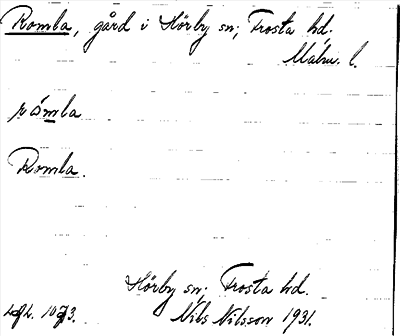 Romla, gård i Hörby sn; Frosta hd.
Malm. l.
råmla
Romla.
Hörby sn; Frosta hd.
Nils Nilsson 1931.